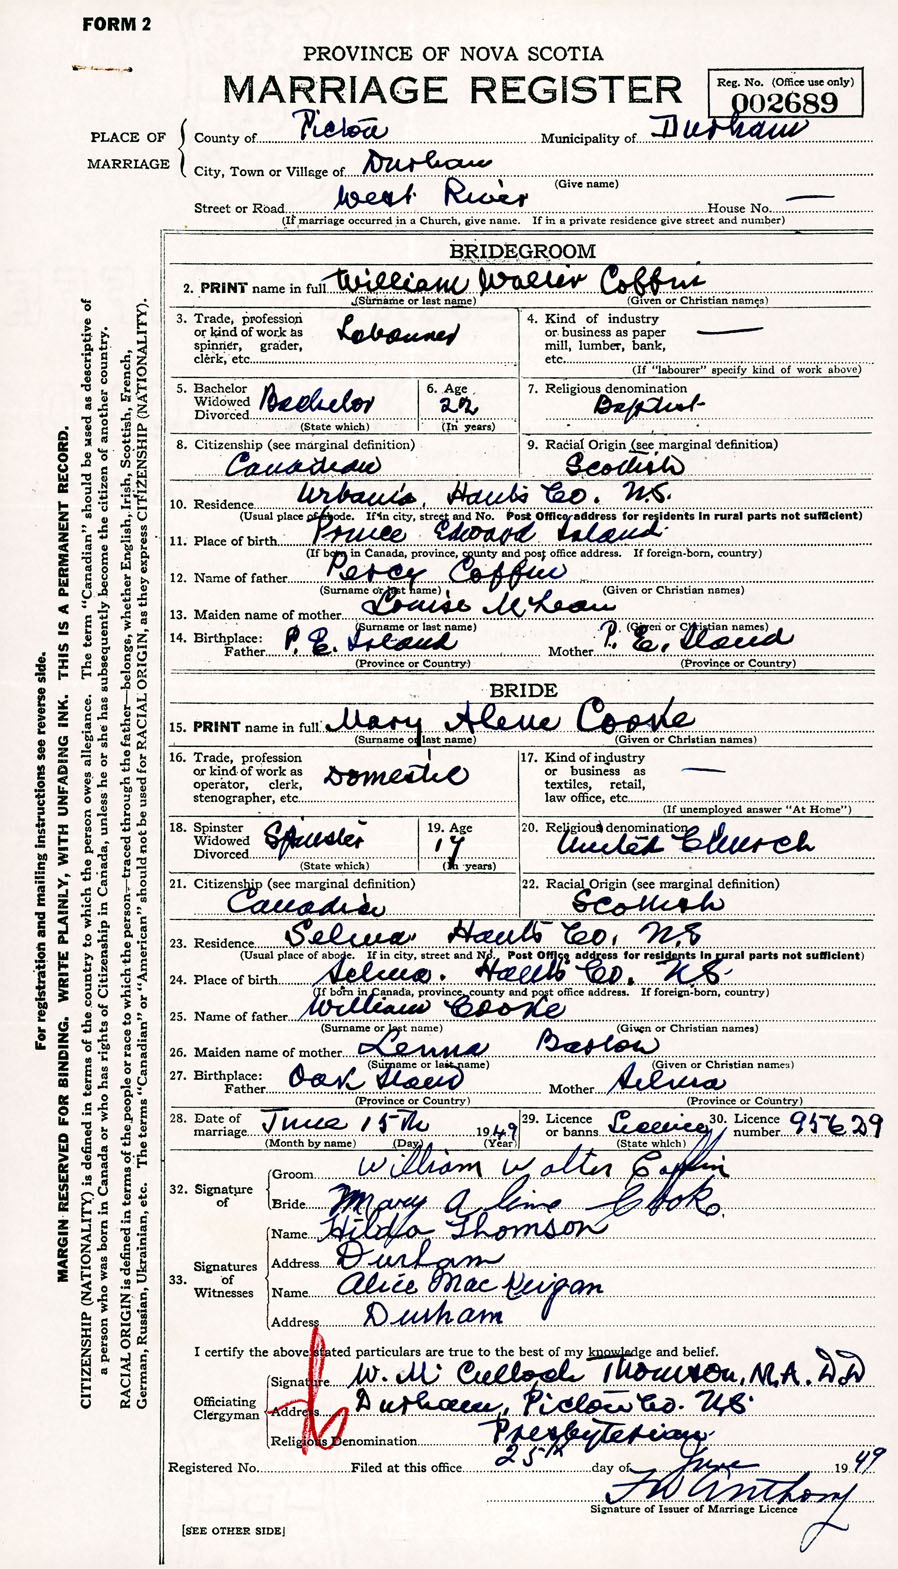 FORM 2
PROVINCE OF NOVA SCOTIA
MARRIAGE REGISTER
Reg. No. (Office use only)
002689
PLACE OF MARRIAGE
County of Pictou Municipality of Durham
City, Town or Village of Durham
(Give name)
Street or Road West River House No. —
(If marriage occurred in a Church, give name. If in a private residence give street and number)
BRIDEGROOM
2. PRINT name in full William Walter Coffin
(Surname or last name) (Given or Christian names)
3. Trade, profession or kind of work as spinner, grader, clerk, etc. Labourer
4. Kind of industry or business as paper mill, lumber, bank, etc. —
(If "labourer" specify kind of work above)
5. Bachelor Widowed Divorced Bachelor
(State which)
6. Age 22
(In years)
7. Religious denomination Baptist
8. Citizenship (see marginal definition) Canadian
9. Racial Origin (see marginal definition) Scottish
10. Residence Urbania, Hants Co. N.S.
(Usual place of abode. If in city, street and No. Post Office address for residents in rural parts not sufficient)
11. Place of birth Prince Edward Island
(If born in Canada, province, county and post office address. If foreign-born, country)
12. Name of father Percy Coffin
(Surname or last name) (Given or Christian names)
13. Maiden name of mother Louise McLean
(Surname or last name) (Given or Christian names)
14. Birthplace: Father P. E. Island Mother P. E. Island
(Province or Country) (Province or Country)
BRIDE
15. PRINT name in full Mary Alene Cooke
(Surname or last name) (Given or Christian names)
16. Trade, profession or kind of work as operator, clerk, stenographer, etc. Domestic
17. Kind of industry or business as textiles, retail, law office, etc. —
(If unemployed answer "At Home")
18. Spinster Widowed Divorced Spinster
(State which)
19. Age 17
(In years)
20. Religious denomination United Church
21. Citizenship (see marginal definition) Canadian
22. Racial Origin (see marginal definition) Scottish
23. Residence Selma Hants Co. N.S
(Usual place of abode. If in city, street and No. Post Office address for residents in rural parts not sufficient)
24. Place of birth Selma. Hants Co. N.S.
(If born in Canada, province, county and post office address. If foreign-born, country)
25. Name of father William Cooke
(Surname or last name) (Given or Christian names)
26. Maiden name of mother Lenna Barlow
(Surname or last name) (Given or Christian names)
27. Birthplace: Father Oak Island Mother Selma
(Province or Country) (Province or Country)
28. Date of marriage June 15th 1949
(Month by name) (Day) (Year)
29. Licence or banns Licence
(State which)
30. Licence number 95629
32. Signature of
Groom William Walter Coffin
Bride Mary Arline Cooke
33. Signatures of Witnesses
Name Hilda Thomson
Address Durham
Name Alice MacKeigan
Address Durham
I certify the above stated particulars are true to the best of my knowledge and belief.
Officiating Clergyman
Signature W. McCulloch Thomson, M.A. DD
Address Durham, Pictou Co. N.S.
Religious Denomination Presbyterian
Registered No. Filed at this office 25th day of June 1949
FW Anthony
Signature of Issuer of Marriage Licence
[SEE OTHER SIDE]
For registration and mailing instructions see reverse side.
MARGIN RESERVED FOR BINDING. WRITE PLAINLY, WITH UNFADING INK. THIS IS A PERMANENT RECORD.
CITIZENSHIP (NATIONALITY) is defined in terms of the country to which the person owes allegiance. The term "Canadian" should be used as descriptive of
a person who was born in Canada or who has rights of Citizenship in Canada, unless he or she has subsequently become the citizen of another country.
RACIAL ORIGIN is defined in terms of the people or race to which the person—traced through the father—belongs, whether English, Irish, Scottish, French,
German, Russian, Ukrainian, etc. The terms "Canadian" or "American" should not be used for RACIAL ORIGIN, as they express CITIZENSHIP (NATIONALITY).